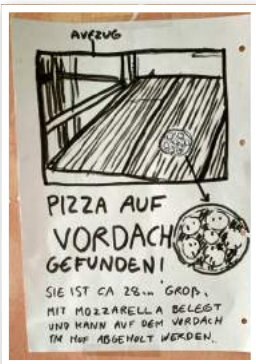 AUFZUG
PIZZA AUF
VORDACH
GEFUNDEN!
SIE IST CA 28cm GROß,
MIT MOZZARELLA BELEGT
UND KANN AUF DEM VORDACH
IM HOF ABGEHOLT WERDEN.